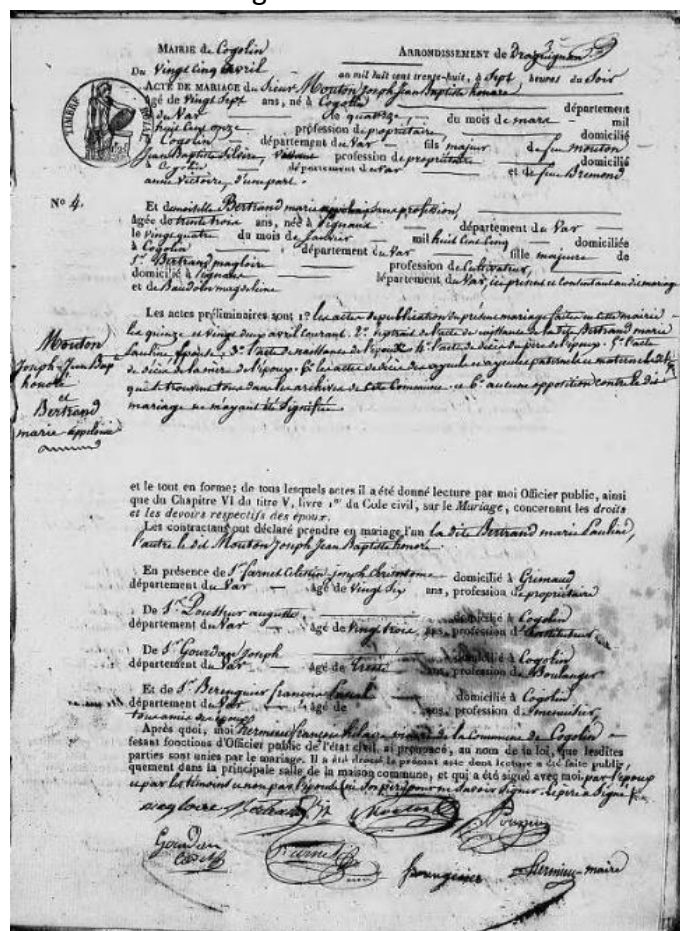 MAIRIE de Cogolin ARRONDISSEMENT de Draguignan
Du Vingt Cinq avril an mil huit cent trente-huit, à Sept heures du Soir
ACTE DE MARIAGE du Sieur Mouton Joseph Jean Baptiste honoré
âgé de Vingt Sept ans, né à Cogolin département
du Var le quatorze, du mois de mars mil
huit Cent onze profession de propriétaire domicilié
à Cogolin département du Var fils majeur de feu mouton
Jean Baptiste profession de propriétaire domicilié
à Cogolin département du Var et de feue Bremond
anne Victoire, d'une part.
TIMBRE ROYAL
N° 4.
Et demoiselle Bertrand marie sans profession,
âgée de trente trois ans, née à Vignaux département du Var
le vingt quatre du mois de Janvier mil huit Cent Cinq domiciliée
à Cogolin département du Var fille majeure de
Sr. Bertrand magloire profession de Cultivateur,
domicilié à Vignaux département du Var, ici présent et Consentant au dit mariage
et de magdeleine
Les actes préliminaires sont 1° les actes de publication du présent mariage faites en cette mairie
les quinze et vingt deux avril Courant. 2° extrait de l'acte de naissance de la dite Bertrand marie
Pauline, Épouse, 3° l'acte de naissance de l'époux 4° l'acte de décès du père de l'époux. 5° l'acte
de décès de la mère de l'époux. 6° les actes de décès des ayeuls et ayeules paternels et maternels
qui se trouvent tous dans les archives de Cette Commune. et 6° aucune opposition contre le dit
mariage ne m'ayant été Signifiée
Mouton
Joseph Jean Bap
honoré
et
Bertrand
marie
et le tout en forme; de tous lesquels actes il a été donné lecture par moi Officier public, ainsi
que du Chapitre VI du titre V, livre 1er du Code civil, sur le Mariage, concernant les droits
et les devoirs respectifs des époux.
Les contractans ont déclaré prendre en mariage l'un la dite Bertrand marie Pauline,
l'autre le dit Mouton Joseph Jean Baptiste honoré
En présence de Sr. farnet Celestin joseph domicilié à Grimaud
département du Var âgé de vingt Six ans, profession de propriétaire
De Sr. auguste domicilié à Cogolin
département du Var âgé de Vingt trois ans, profession d'instituteur
De Sr. Gourdan Joseph domicilié à Cogolin
département du Var âgé de Trente ans, profession de Boulanger
Et de Sr. Berenguier françois domicilié à Cogolin
département du Var âgé de ans, profession de
tous amis des époux
Après quoi, moi hermieu françois maire de la Commune de Cogolin
fesant fonctions d'Officier public de l'état civil, ai prononcé, au nom de la loi, que lesdites
parties sont unies par le mariage. Il a été dressé le présent acte dont lecture a été faite publi-
quement dans la principale salle de la maison commune, et qui a été signé avec moi par l'époux
et par les témoins et non par l'épouse ni Son père pour ne Savoir Signer
Mouton
Gourdan
farnet hermieu maire